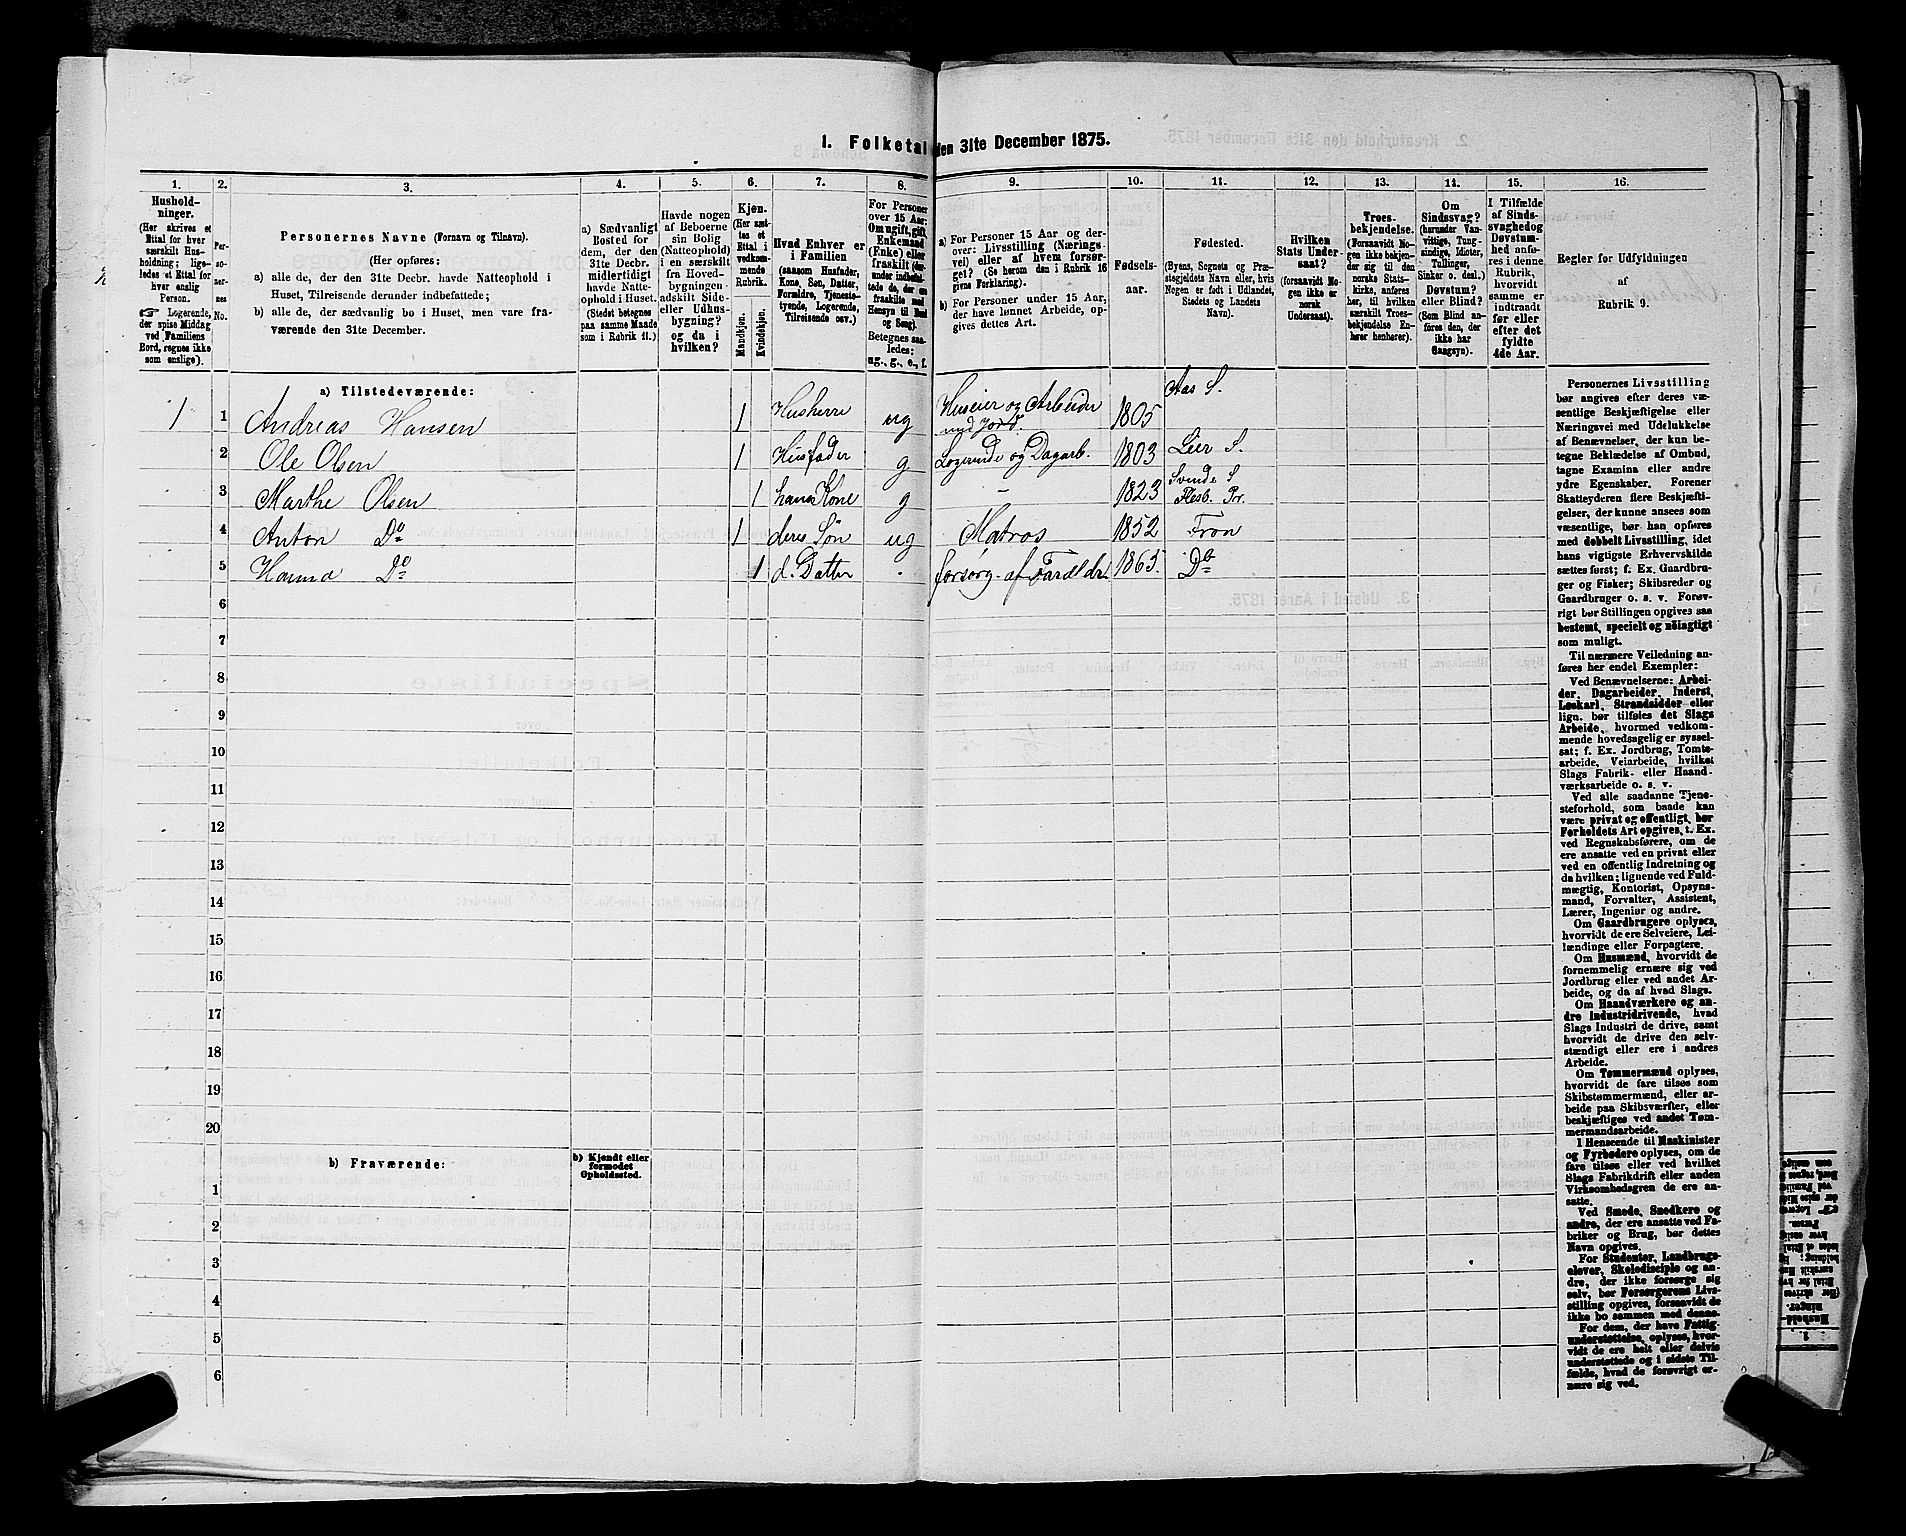 1. Folketal den 31te December 1875.
1. 2. 3. 4. 5. 6. 7. 8. 9. 10. 11. 12. 13. 14. 15. 16.
Hushold-
ninger.
(Her skrives et
Ettal for hver
særskilt Hus-
holdning; lige-
ledes et Ettal for
hver enslig
Person.
☞ Logerende,
der spise Middag
ved Familiens
Bord, regnes ikke
som enslige).
Per-
so-
ner-
nes
No.
Personernes Navne (Fornavn og Tilnavn).
(Her opføres:
a) alle de, der den 31te Decbr. havde Natteophold i
Huset, Tilreisende derunder indbefattede;
b) alle de, der sædvanlig bo i Huset, men vare fra-
værende den 31te December.
a) Sædvanligt
Bosted for
dem, der den
31te Decbr.
midlertidigt
havde Natte-
ophold i Huset.
(Stedet betegnes
paa samme Maade
som i Rubrik 11.)
Havde nogen
af Beboerne
sin Bolig
(Natteophold)
i en særskilt
fra Hoved-
bygningen
adskilt Side-
eller Udhus-
bygning?
og da i
hvilken?
Kjøn.
(Her sæt-
tes et
Ettal i
vedkom-
mende
Rubrik.
Mandkjøn.
Kvindekjøn.
Hvad Enhver er
i Familien
(saasom Husfader,
Kone, Søn, Datter,
Forældre, Tjeneste-
tyende, Logerende,
Tilreisende osv.)
For Personer
over 15 Aar:
Om ugift, gift,
Enkemand
(Enke) eller
fraskilt (der-
under indbefat-
tede de, der ere
fraskilte med
Hensyn til Bord
og Seng).
Betegnes saa-
ledes:
ug., g., e., f.
a) For Personer 15 Aar og der-
over: Livsstilling (Nærings-
vei) eller af hvem forsør-
get? (Se herom den i Rubrik 16
givne Forklaring).
b) For Personer under 15 Aar,
der have lønnet Arbeide, op-
gives dettes Art.
Fødsels-
aar.
Fødested.
(Byens, Sognets og Præ-
stegjeldets Navn eller, hvis
Nogen er født i Udlandet,
Stedets og Landets
Navn).
Hvilken
Stats Under-
saat?
(forsaavidt No-
gen ikke er
norsk
Undersaat).
Troes-
bekjendelse.
(Forsaavidt No-
gen ikke bekjen-
der sig til den
norske Stats-
kirke, anføres
her, til hvilken
særskilt Troes-
bekjendelse En-
hver henhører).
Om
Sindssvag?
(herunder Van-
vittige, Tung-
sindige, Idioter,
Tullinger,
Sinker o. desl.)
Døvstum?
eller Blind?
(Som Blind an-
føres den, der
ikke har
Gangsyn).
I Tilfælde
af Sinds-
svaghed og
Døvstum-
hed anfø-
res i denne
Rubrik,
hvorvidt
samme er
indtraadt
før eller
efter det
fyldte
4de Aar.
Regler for Udfyldningen
af
Rubrik 9.
a) Tilstedeværende:
1 1 Andreas Hansen 1 Husherre ug Huseier og Arbeider med Jord 1805 Aas S.
2 Ole Olsen 1 Husfader g Logerende og Dagarb. 1803 Lier S.
3 Marthe Olsen 1 hans Kone g – 1823 Svende S Flesb. Pr.
4 Anton Do 1 deres Søn ug Matros 1852 Fron
5 Hanna Do 1 d. Datter - forsørg. af Foræeldr. 1865. Do
6
7
8
9
10
11
12
13
14
15
16
17
18
19
20
b) Fraværende:
b) Kjendt eller
formodet
Opholdssted.
1
2
3
4
5
6
Personernes Livsstilling
bør angives efter deres væ-
sentlige Beskjæftigelse eller
Næringsvei med Udelukkelse
af Benævnelser, der kun be-
tegne Beklædelse af Ombud,
tagne Examina eller andre
ydre Egenskaber. Forener
Skatteyderen flere Beskjæfti-
gelser, der kunne ansees som
væsentlige, bør han opføres
med dobbelt Livsstilling, idet
hans vigtigste Erhvervskilde
sættes først; f. Ex. Gaardbru-
ger og Fisker; Skibsreder og
Gaardbruger o. s. v. Forøv-
rigt bør Stillingen opgives saa
bestemt, specielt og nöiagtigt
som muligt.
Til nærmere Veiledning an-
føres her endel Exempler:
Ved Benævnelserne: Arbei-
der, Dagarbeider, Inderst,
Løskarl, Strandsidder eller
lign. bør tilføies det Slags
Arbeide, hvormed vedkom-
mende hovedsagelig er syssel-
sat; f. Ex. Jordbrug, Tomte-
arbeide, Veiarbeide, hvilket
Slags Fabrik- eller Haand-
værksarbeide o. s. v.
Ved alle saadanne Tjene-
steforhold, som baade kan
være privat og offentligt, bør
Forholdets Art opgives, t. Ex.
ved Regnskabsførere, om de
ere ansatte ved en privat eller
ved en offentlig Indretning og
da hvilken; lignende ved Fuld-
mægtig, Kontorist, Opsyns-
mand, Forvalter, Assistent,
Lærer, Ingeniør og andre.
Om Gaardbrugere oplyses,
hvorvidt de ere Selveiere, Lei-
lændinge eller Forpagtere.
Om Husmænd, hvorvidt de
fornemmelig ernære sig ved
Jordbrug eller ved andet Ar-
beide, og da af hvad Slags.
Om Haandværkere og an-
dre Industridrivende, hvad
Slags Industri de drive, samt
hvorvidt de drive den selv-
stændigt eller ere i andres
Arbeide.
Om Tømmermænd oplyses,
hvorvidt de fare tilsøs som
Skibstømmermænd, eller ar-
beide paa Skibsværfter, eller
beskjæftiges ved andet Tøm-
mermandsarbeide.
I Henseende til Maskinister
og Fyrbødere oplyses, om de
fare tilsøs eller ved hvilket
Slags Fabrikdrift eller anden
Virksomhedsgren de ere an-
satte.
Ved Smede, Snedkere og
andre, der ere ansatte ved Fa-
briker og Brug, bør dettes
Navn opgives.
For Studenter, Landbrugs-
elever, Skoledisciple og an-
dre, der ikke forsørge sig
selv, bør Forsørgerens Livs-
stilling opgives, forsaavidt de
ikke bo sammen med denne.
For dem, der have Fattig-
understøttelse, oplyses, hvor-
vidt de ere helt eller delvis
understøttede og i sidste Til-
fælde, hvad de forøvrigt er-
nære sig ved.